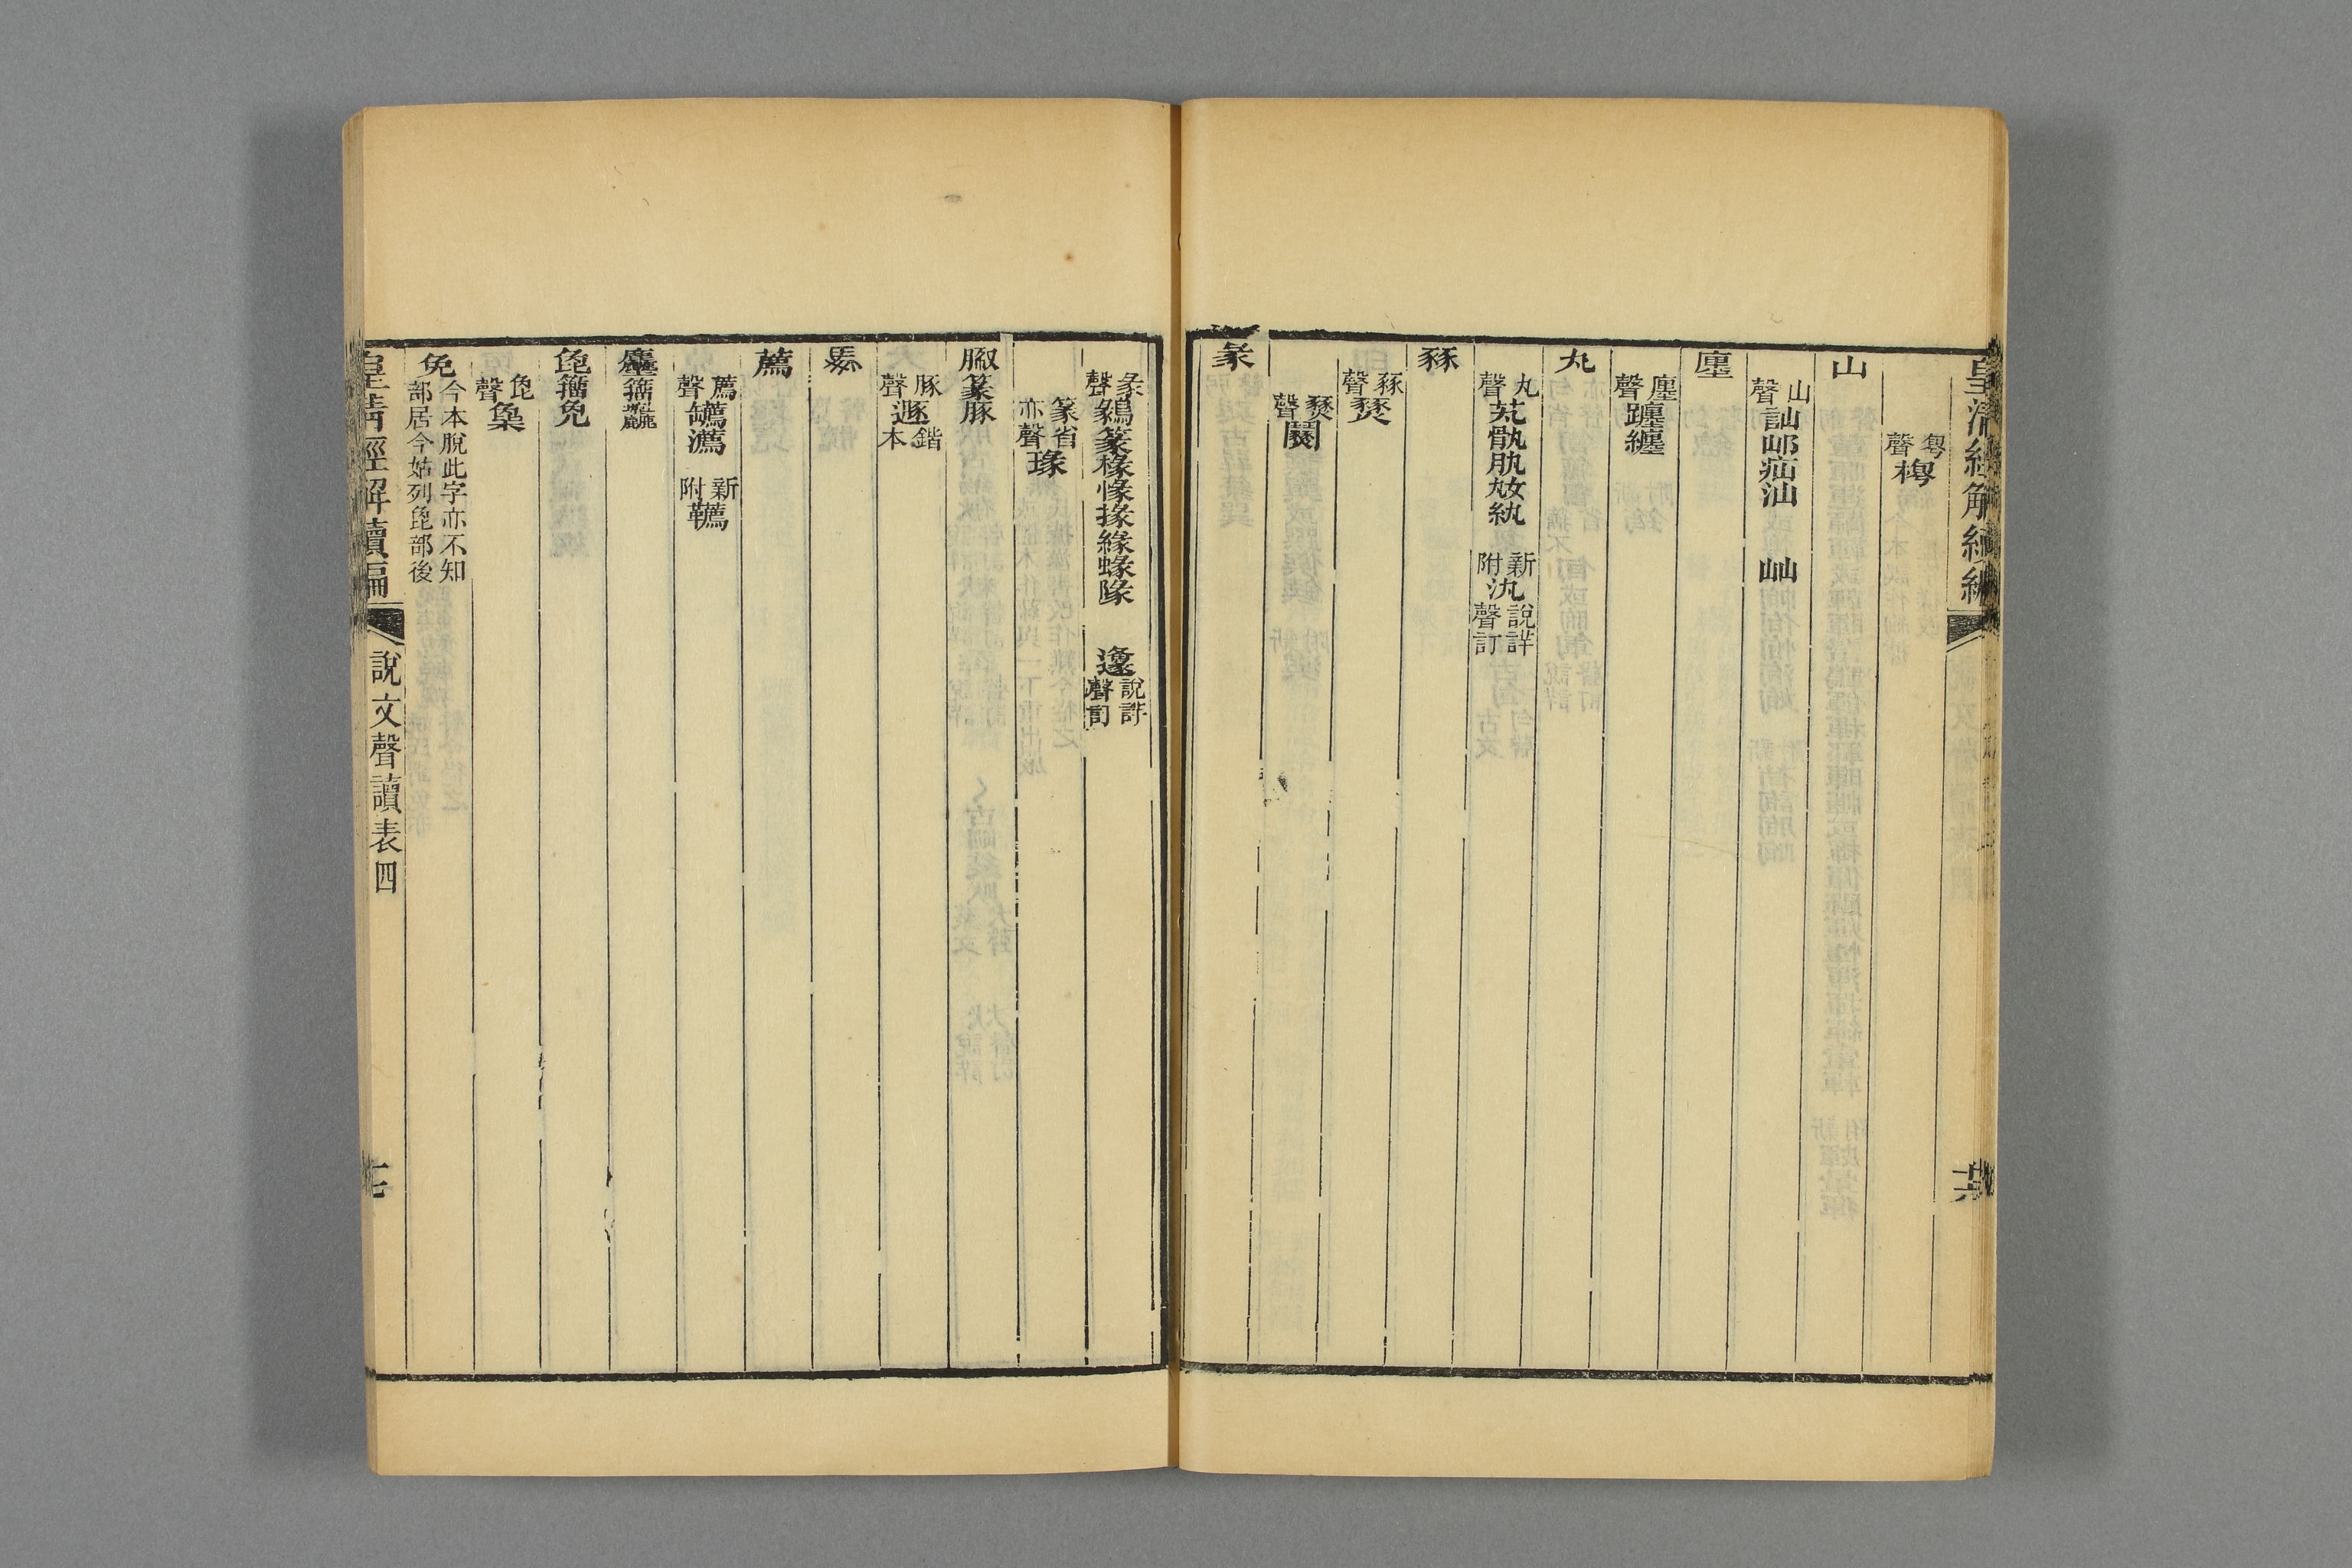 皇清經解續編
臱聲櫋
山
山聲訕邖疝汕 屾
廛
廛聲躔纏
丸
丸聲芄骫肒奿紈 新附汍說詳聲訂
豩
豩聲燹
燹聲闋
彖
彖聲鶨篆椽惰掾緣蝝隊 邍說詳聲訂
篆省亦聲瑑
豚篆豚
豚聲遯鍇本
馬
薦
薦聲韉瀳 新附韉
麤籀
㲋籀
㲋聲
免今本脫此字亦不知部居今姑列㲋部後
皇清經解續編
說文聲讀表四